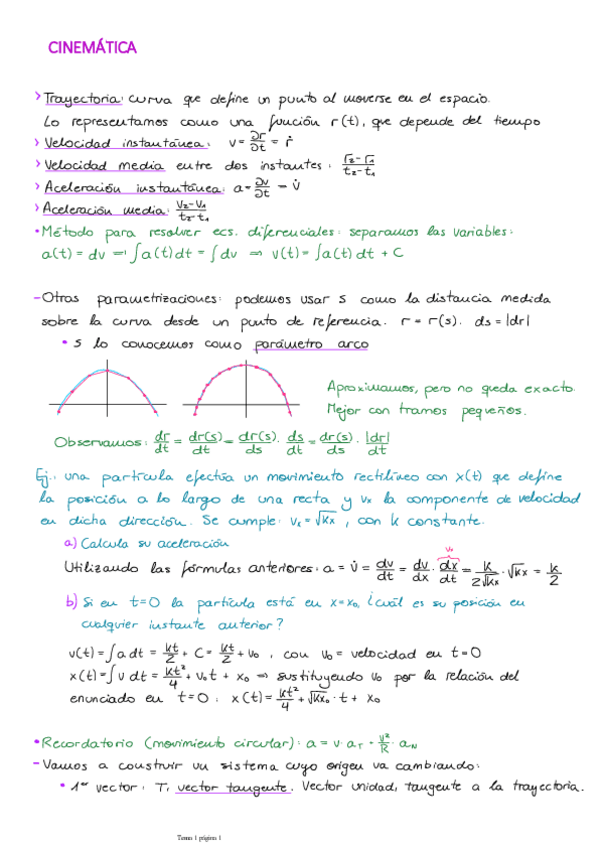 CINEMÁTICA
> Trayectoria: curva que define un punto al moverse en el espacio.
Lo representamos como una función r(t), que depende del tiempo
> Velocidad instantánea: v = ∂r/∂t = ṙ
> Velocidad media entre dos instantes: (r₂-r₁)/(t₂-t₁)
> Aceleración instantánea: a = ∂v/∂t = v̇
> Aceleración media: (v₂-v₁)/(t₂-t₁)
• Método para resolver ecs. diferenciales: separamos las variables:
a(t) = dv ⇒ ∫a(t)dt = ∫dv ⇒ v(t) = ∫a(t)dt + C
- Otras parametrizaciones: podemos usar s como la distancia medida
sobre la curva desde un punto de referencia. r = r(s). ds = |dr|
• s lo conocemos como parámetro arco
Aproximamos, pero no queda exacto.
Mejor con tramos pequeños.
Observamos: dr/dt = dr(s)/dt = dr(s)/ds · ds/dt = dr(s)/ds · |dr|/dt
Ej.: una partícula efectúa un movimiento rectilíneo con x(t) que define
la posición a lo largo de una recta y vx la componente de velocidad
en dicha dirección. Se cumple: vx = √kx, con k constante.
a) Calcula su aceleración
vx
Utilizando las fórmulas anteriores: a = v̇ = dv/dt = dv/dx · dx/dt = k/2√kx · √kx = k/2
b) Si en t=0 la partícula está en x=x₀, ¿cuál es su posición en
cualquier instante anterior?
v(t) = ∫a dt = kt/2 + C = kt/2 + v₀, con v₀ = velocidad en t=0
x(t) = ∫v dt = kt²/4 + v₀t + x₀ ⇒ sustituyendo v₀ por la relación del
enunciado en t=0: x(t) = kt²/4 + √kx₀ · t + x₀
• Recordatorio (movimiento circular): a = v · aT + v²/R · aN
- Vamos a construir un sistema cuyo origen va cambiando:
• 1er vector: T, vector tangente. Vector unidad, tangente a la trayectoria.
Tema 1 página 1